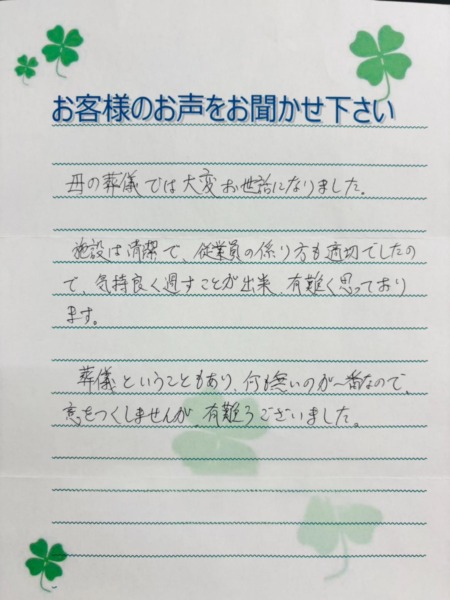 お客様のお声をお聞かせ下さい
母の葬儀では大変お世話になりました。
施設は清潔で、従業員の係り方も適切でしたの
で、気持良く過すことが出来、有難く思っており
ます。
葬儀ということもあり、何も無いのが一番なので、
意をつくしませんが、有難うございました。